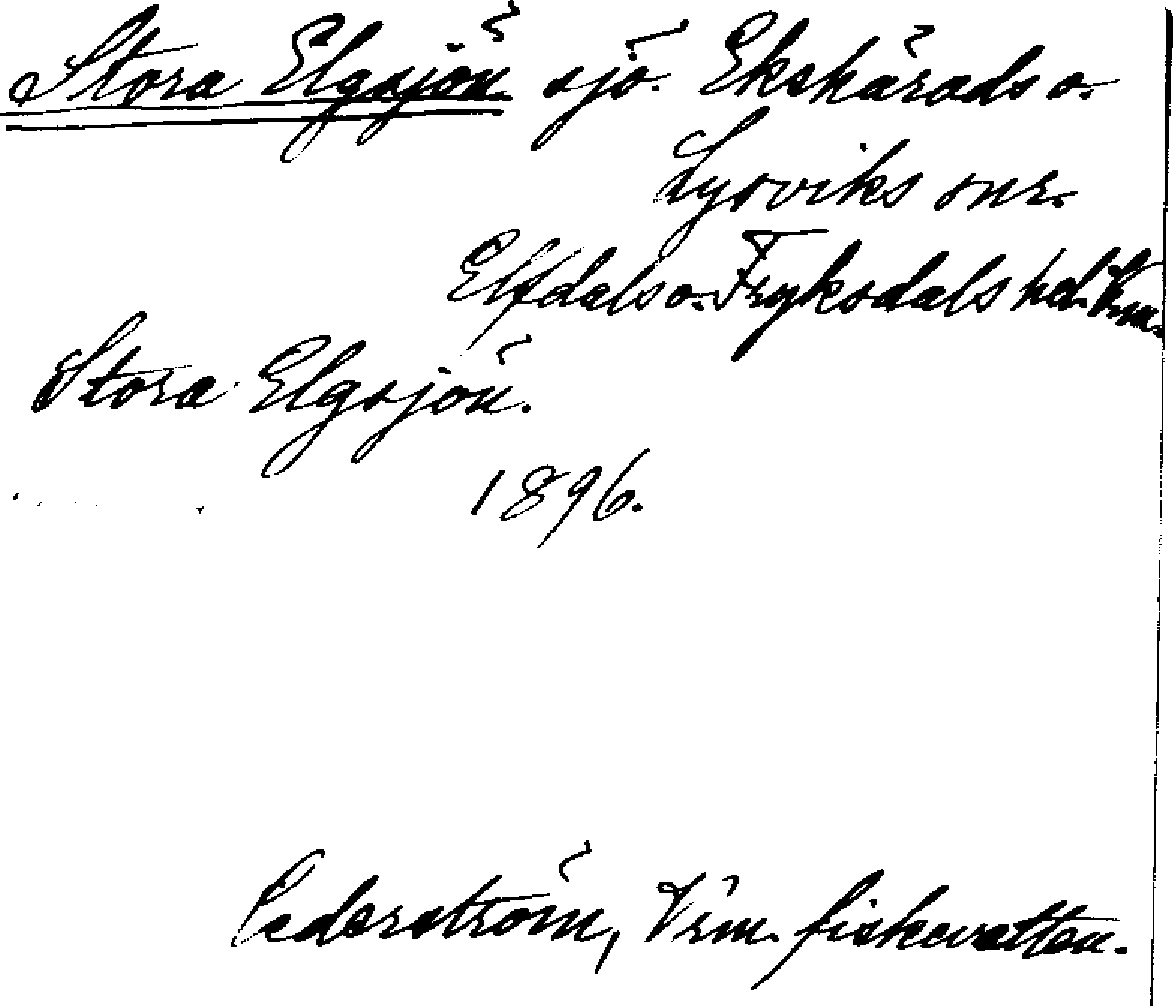 Stora Elgsjön sjö. Ekshärads o.
Lysviks snr.
Elfdals o. Fryksdals hd. Vrm.
Stora Elgsjön.
1896.
Cederström, Vrm. fiskevatten.